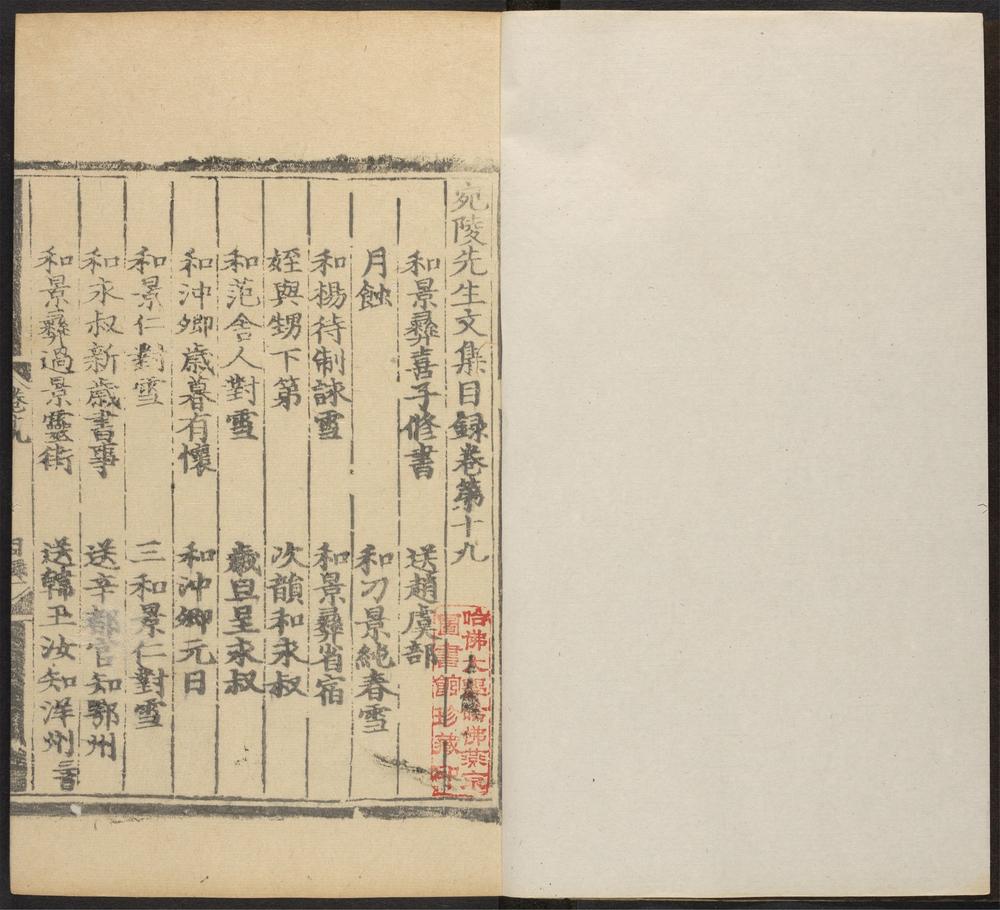 宛陵先生文集目録卷第十九
和景彞喜子修書 送趙虞部
月蝕 和刁景純春雪
和楊待制詠雪 和景彞省宿
姪與甥下第 次韻和永叔
和范舍人對雪 歲旦呈永叔
和沖卿歲暮有懷 和沖卿元日
和景仁對雪 三和景仁對雪
和永叔新歲書事 送辛都官知鄂州
和景彞過景靈街 送韓玉汝知洋州三首
卷十九
目錄
哈佛大學哈佛燕京
圖書館珍藏印